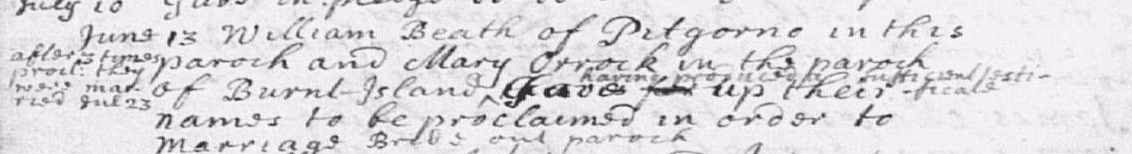 July 10
June 13 William Beath of Pitgorno in this
after 3 times
paroch and Mary Orrock in the paroch
procl: they
having produced a sufficient testi-
were mar-
of Burnt-Island ^ Gave for up their
-ficate
ried Jul 23
names to be proclaimed in order to
Marriage Bride out parock